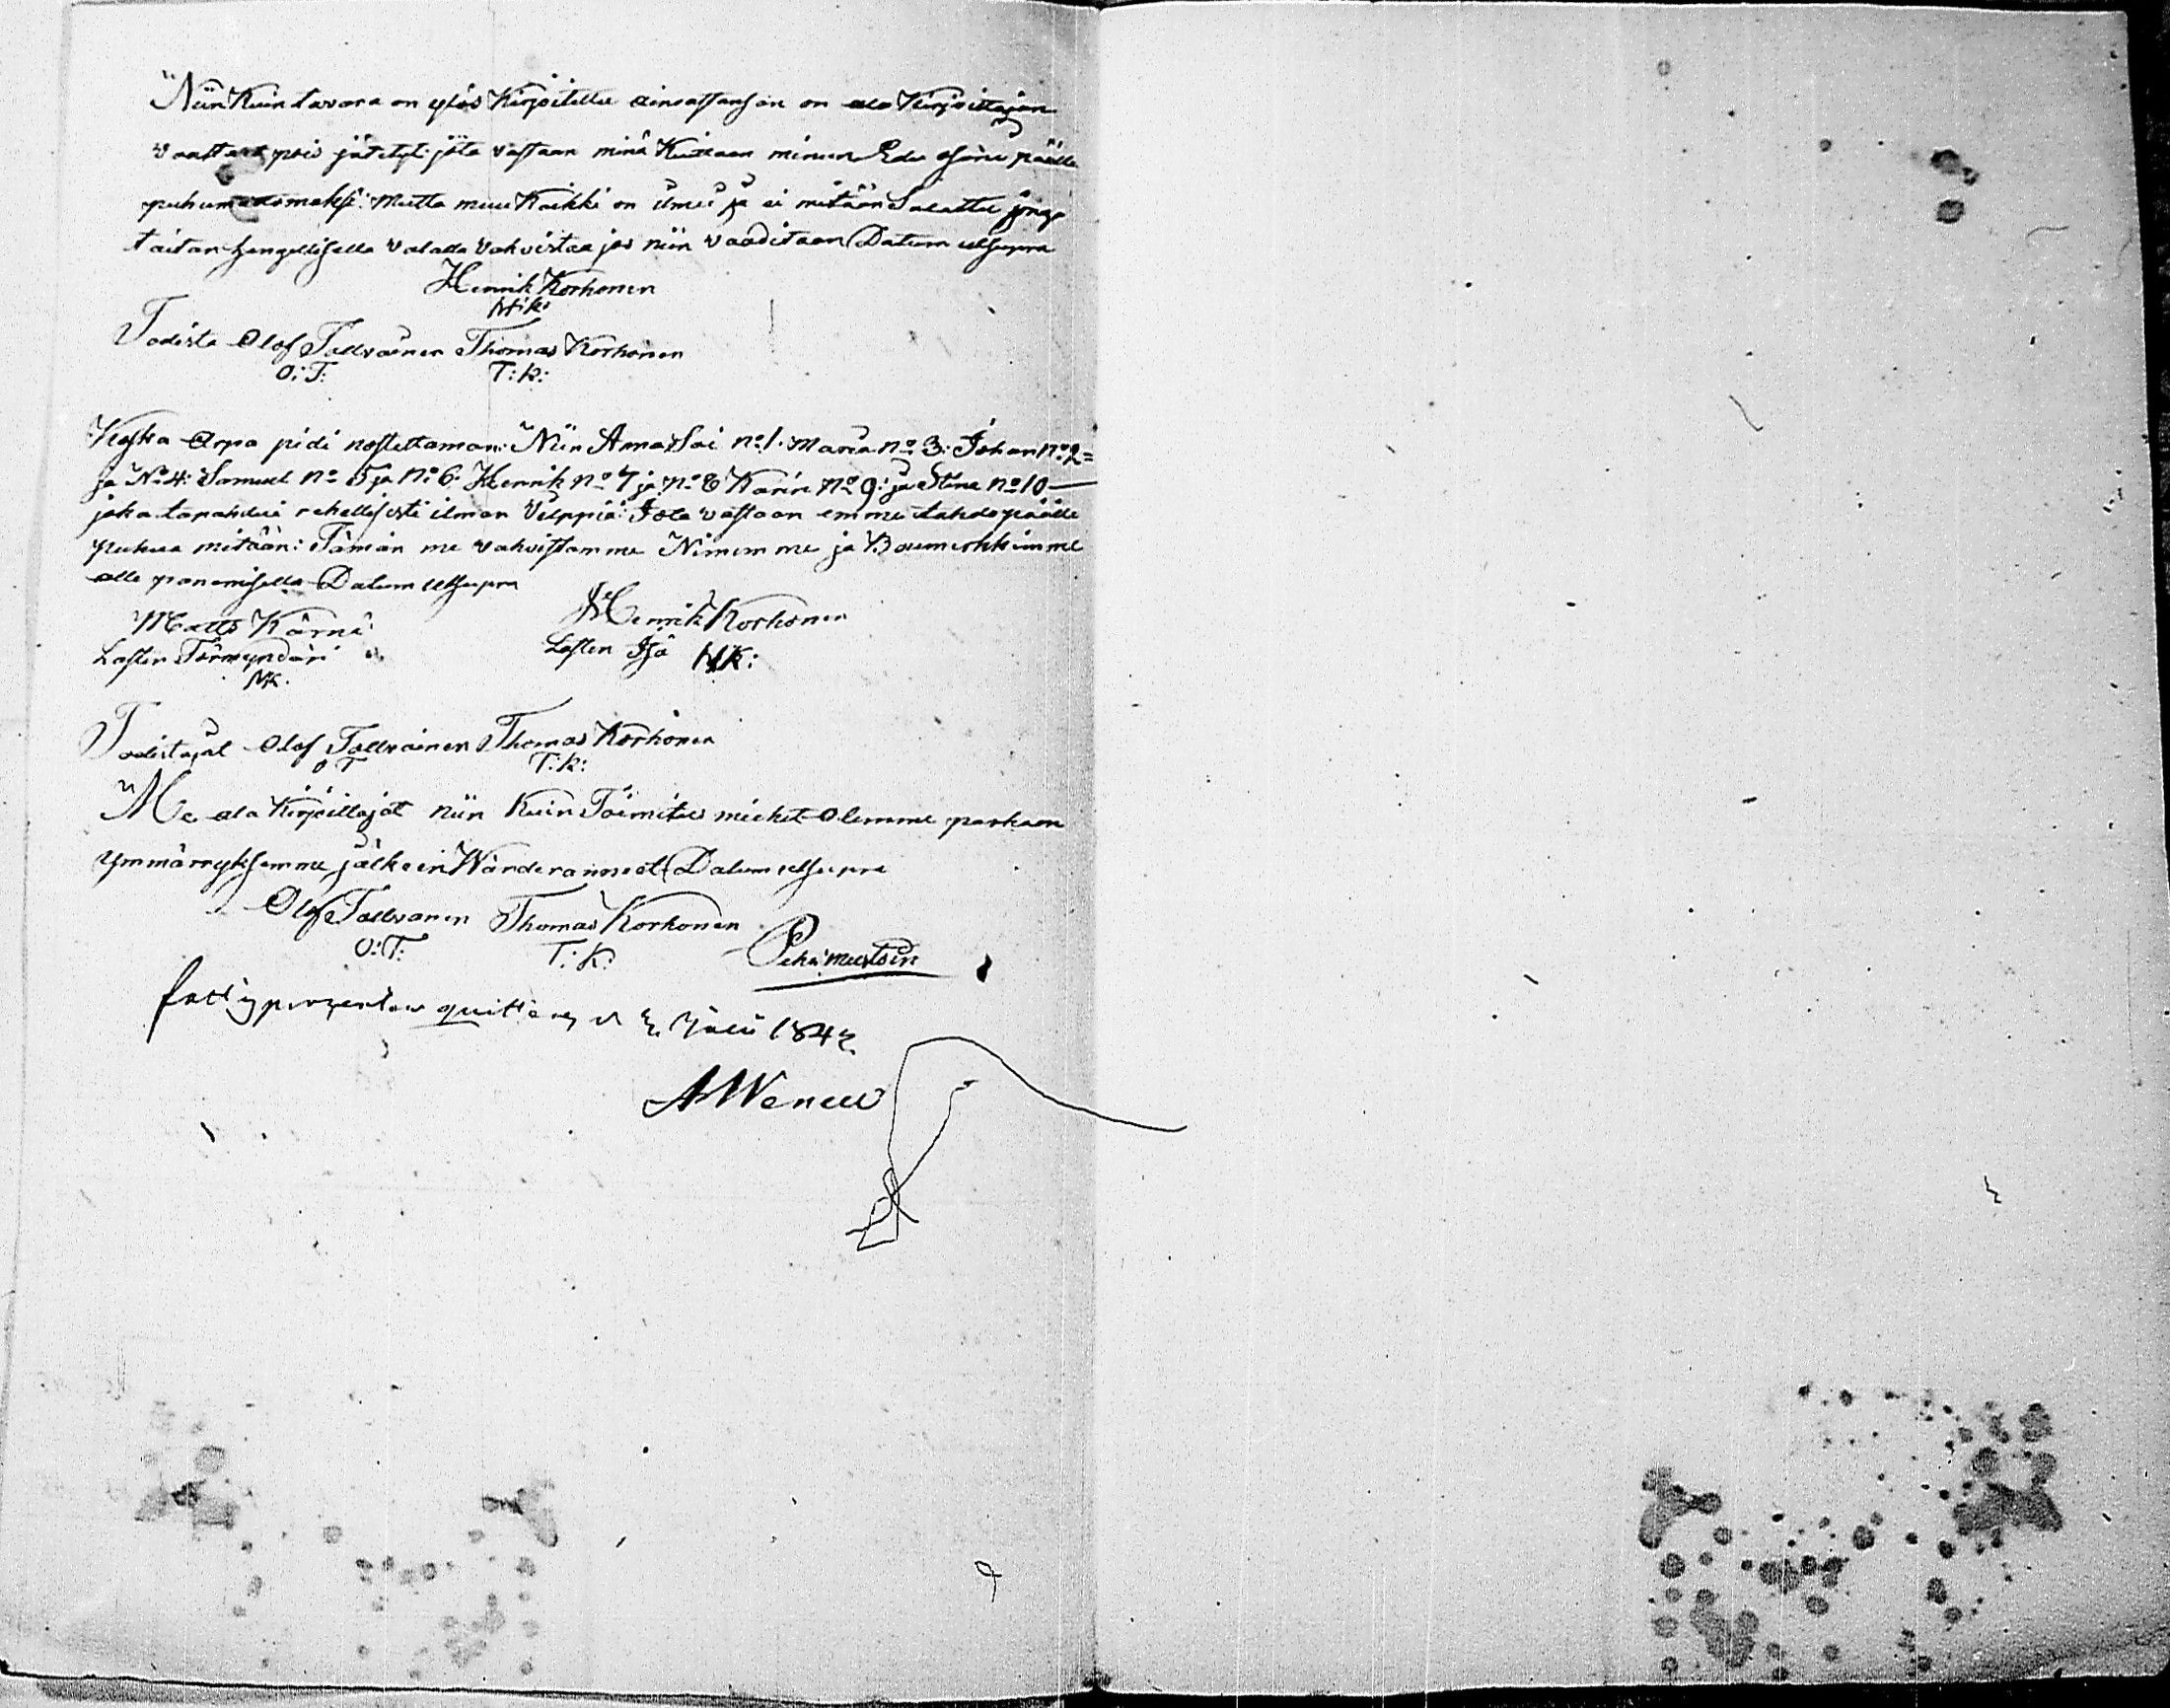 Niin Kuin tavara on ylös Kirjoitettu ainoastansan on ala Kirjoittajan
vaattet pois jätetyt jota vastaan minä Kuttaan minun Edes osani päälle
puhumattomaksi: Mutta muu Kaikki on ilmei ja ei mitään Salattu jonga
taitan hengellisellä valalla vahvistaa jos niin vaaditaan Datum utsupra
Henrik Korhonen
HK:
Todista Olof Tallvainen Thomas Korhonen
O:T: T:K:
Koska Arpa pidi nostettaman: Niin Anna Sai No 1. Maria No 3: Johan No 2=
ja No 4: Samuel No 5 ja No 6: Henrik No 7 ja No 8 Karin No 9: ja Stina No 10
joka tapahdui rehellisesti ilman Vilppiä: Jota vastaan emme tahdo päälle
puhua mitään: Tämän me vahvistamme Nimemme ja Boumerkkimme
alle panemisella Datum utsupra
Matts Kärnä Henrik Korhonen
Lasten Förmyndäri Lasten Isä HK:
MK.
Todistajat Olof Tallvainen Thomas Korhonen
O T T:K:
Me ala Kirjoittajat niin Kuin Toimitus miehet Olemme parhaan
ymmärryksemme jälkein Wärderanneet Datum utsupra
Olof Tallvanen Thomas Korhonen
O:T: T:K:
fattigprozenten quitteras d Julii 1842
A Weneell